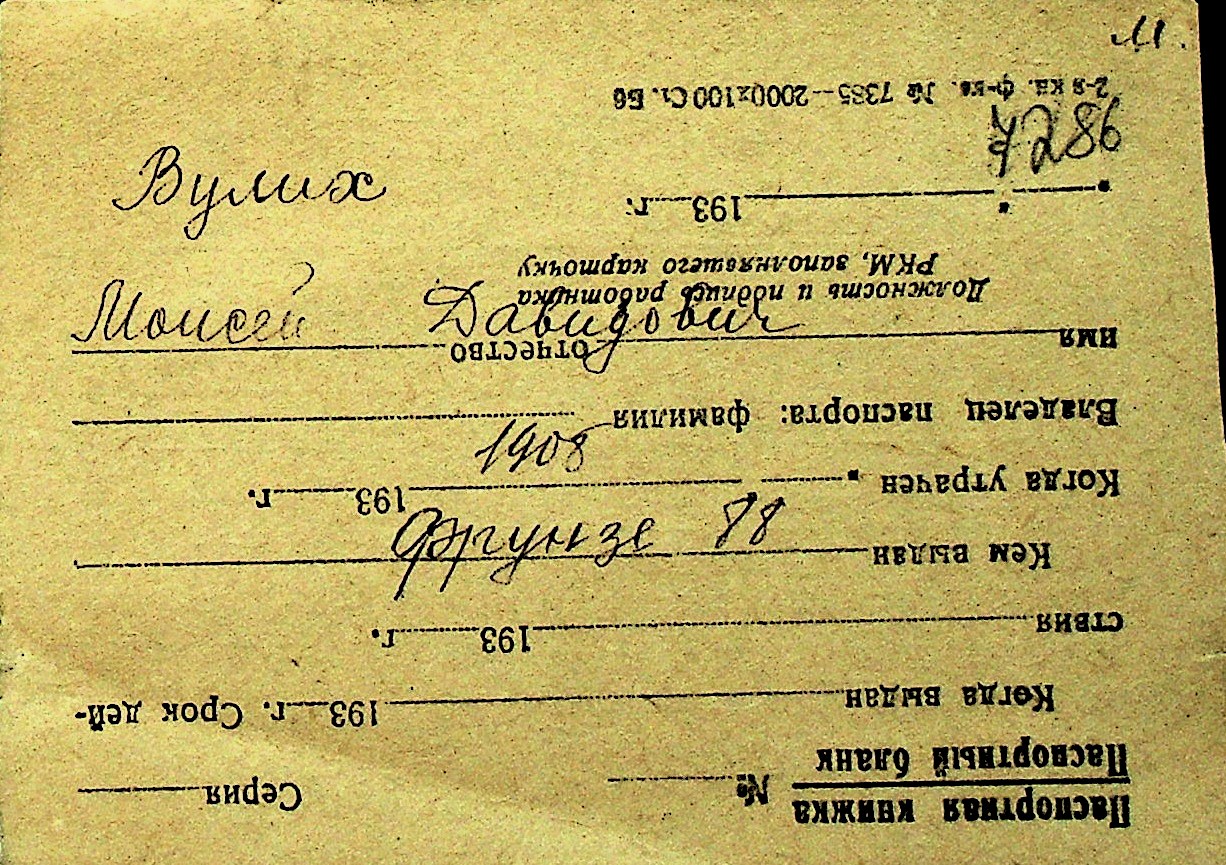 М.
7286
Вулих
Моисей Давидович
1908
Фрунзе 88
Паспортная книжка № Серия
Паспортный бланк
Когда выдан 193 г. Срок дей-
ствия 193 г.
Кем выдан
Когда утрачен 193 г.
Владелец паспорта: фамилия
имя отчество
Должность и подпись работника
РКМ, заполнявшего карточку
193 г.
2-я кн. ф-ка. № 7385—2000х100 Ст. Бб